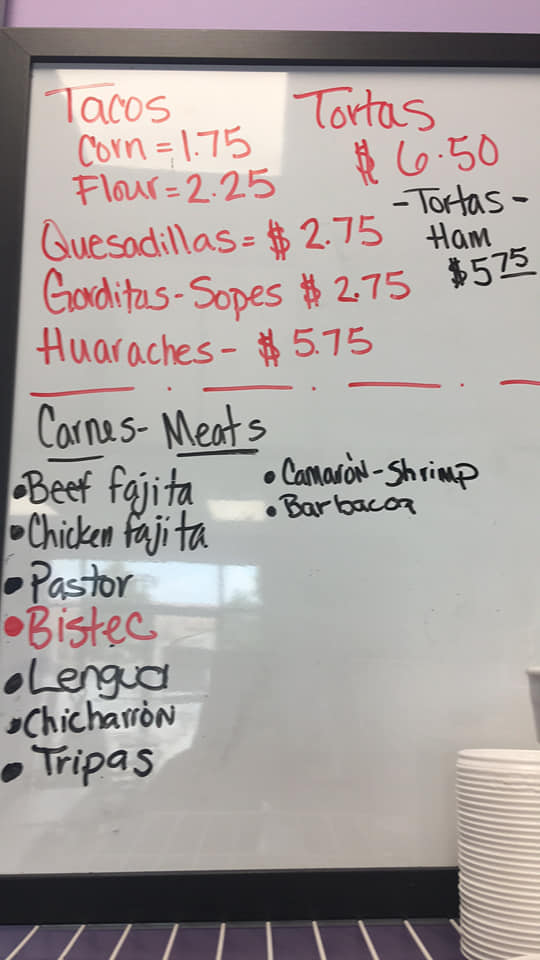 Tacos
Corn = 1.75
Flour = 2.25
Tortas
$ 6.50
-Tortas-
Ham
$5.75
Quesadillas = $ 2.75
Gorditas - Sopes $ 2.75
Huaraches - $ 5.75
Carnes - Meats
• Beef fajita
• Chicken fajita
• Pastor
• Bistec
• Lengua
• Chicharrón
• Tripas
• Camarón - Shrimp
• Barbacoa